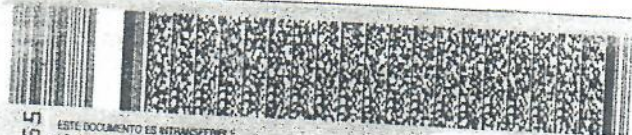 ESTE DOCUMENTO ES INTRANSFERIBLE
55